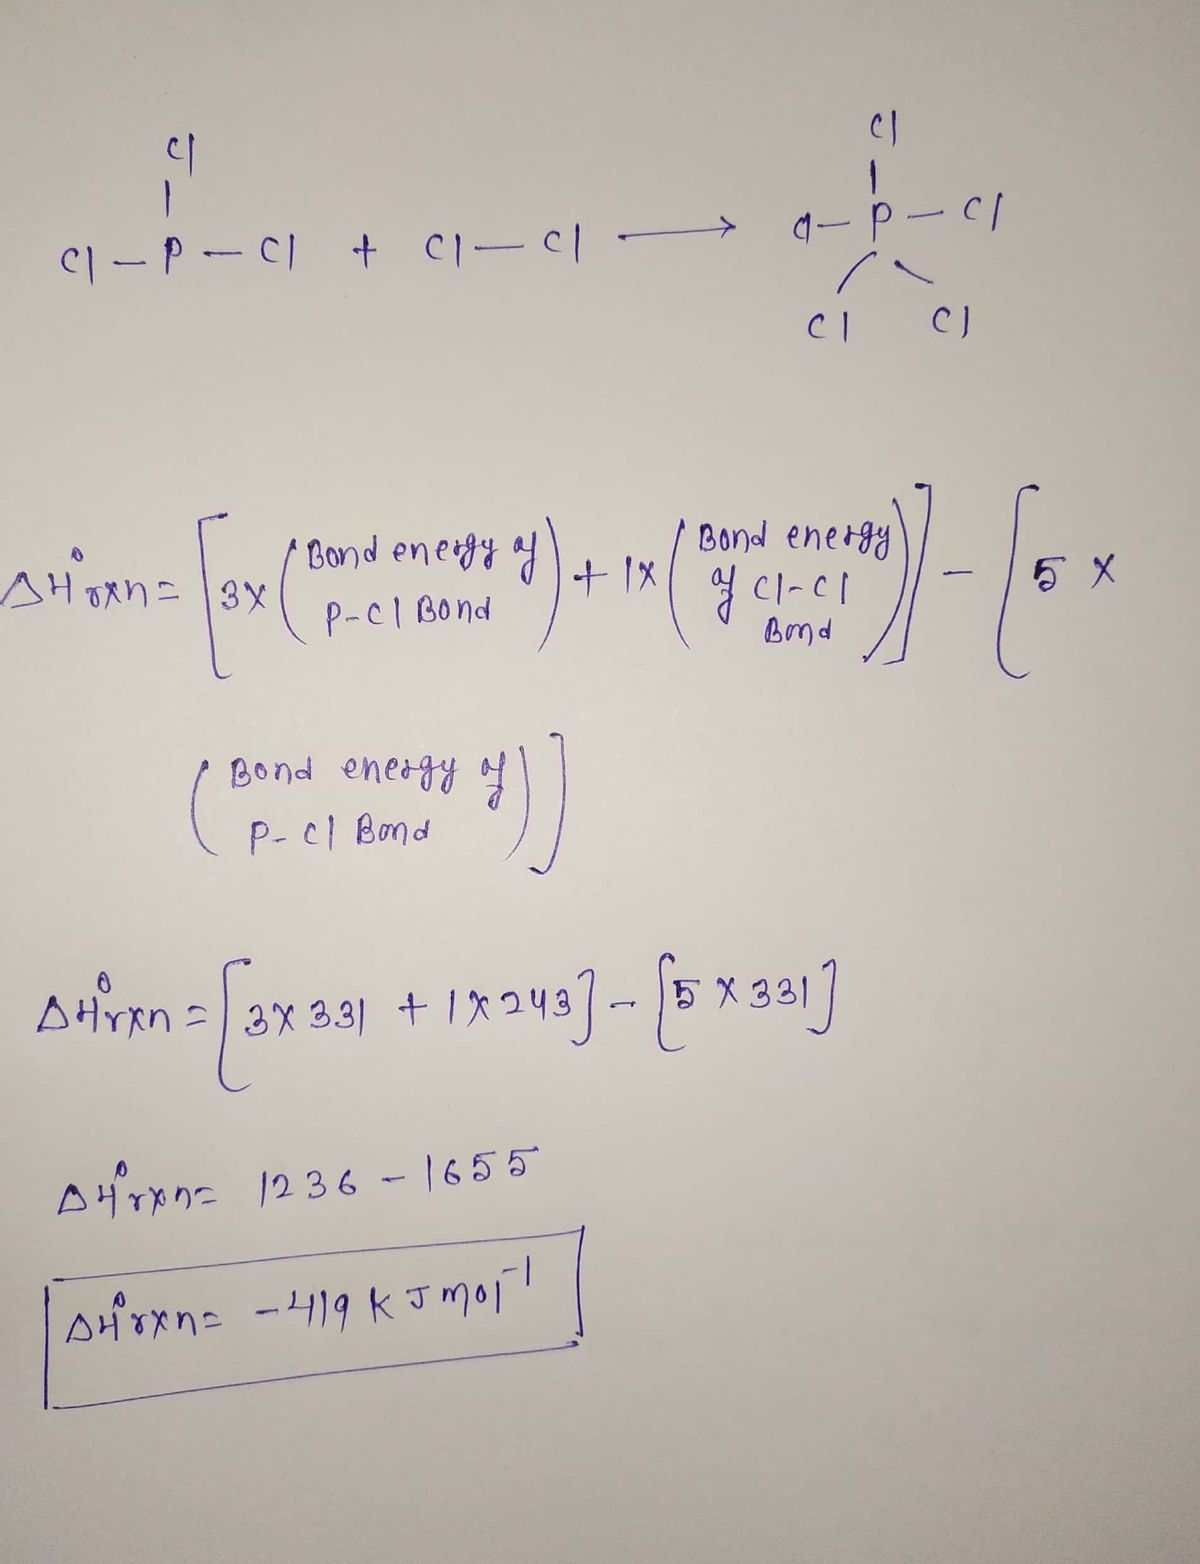 Cl Cl
Cl-P-Cl + Cl-Cl → Cl-P-Cl
Cl Cl
ΔH°rxn = [3x (Bond energy of P-Cl Bond) + 1x (Bond energy of Cl-Cl Bond)] - [5 x
(Bond energy of P-Cl Bond)]
ΔH°rxn = [3x331 + 1x243] - [5x331]
ΔH°rxn = 1236 - 1655
ΔH°rxn = -419 KJ mol⁻¹